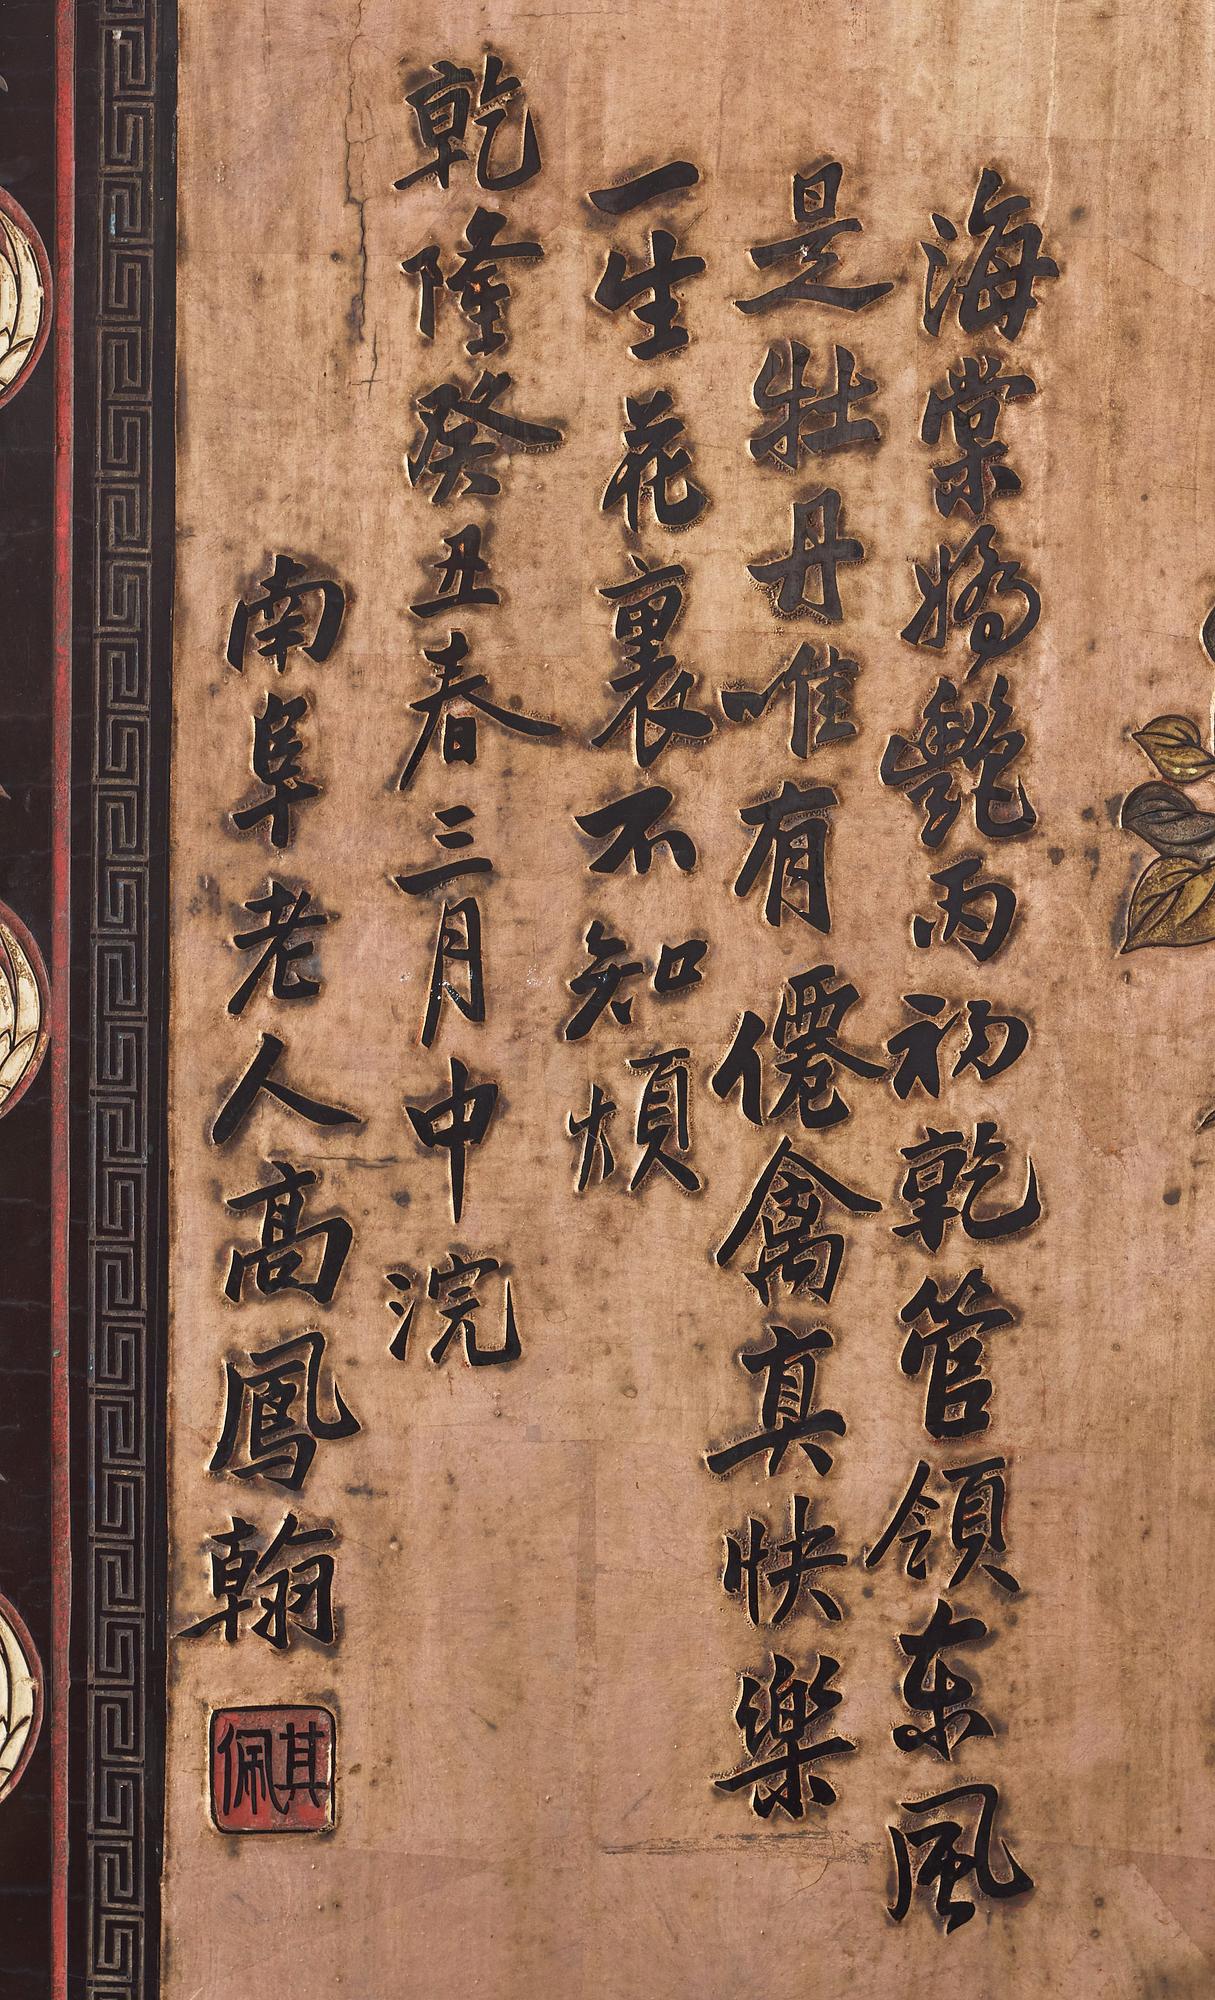 海棠嬌艷丙初乾管領东風
是牡丹唯有僊禽真快樂
一生花裏不知煩
乾隆癸丑春三月中浣
南阜老人高鳳翰
其佩